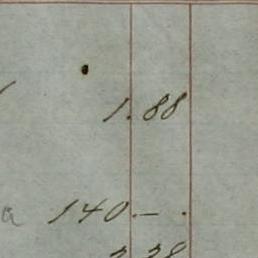 1.88
a 140.–.